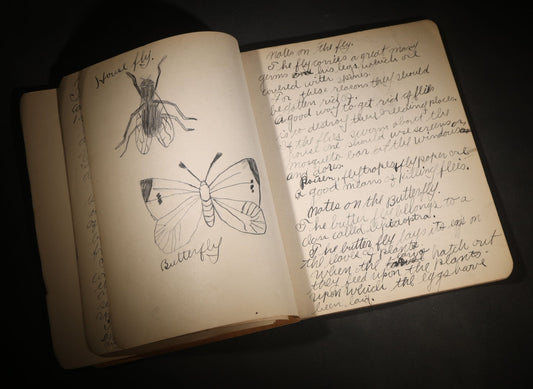 House fly.
Butterfly
Notes on the fly.
The fly carries a great many
germs on his legs which are
covered with spines.
For these reasons they should
be
a good way to get rid of flies
is to destroy their breeding places.
If the flies swarm about the
house one should use screens or
mosquito bar at the windows
and doors.
Poison, fly traps, fly paper are
a good means of killing flies.
Notes on the Butterfly.
The butterfly belongs to a
class called
The butterfly lays its eggs on
the leaves of plants
When the hatch out
they feed upon the plants.
upon which the eggs have
been laid.